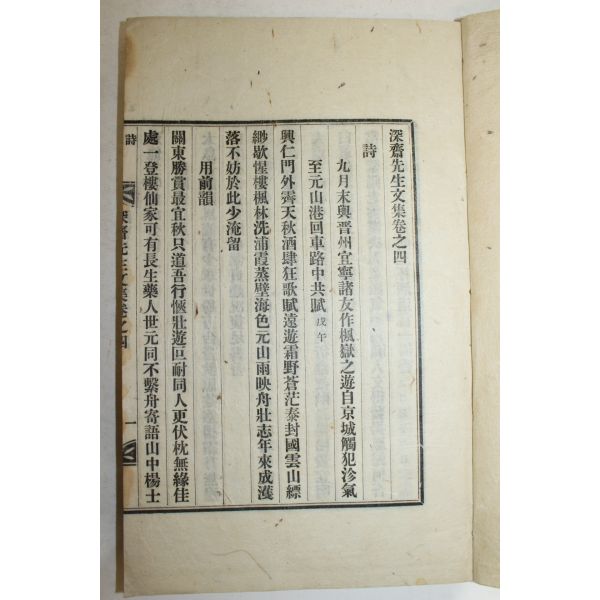 深齋先生文集卷之四
詩
九月末與晋州宜寧諸友作楓嶽之遊自京城觸犯沴氣
至元山港回車路中共賦 戊午
興仁門外霽天秋酒肆狂歌賦遠遊霜野蒼茫泰封國雲山縹
緲歇惺樓楓林洗浦霞蒸壁海色元山雨映舟壯志年來成濩
落不妨於此少淹留
用前韻
關東勝賞最宜秋只道吾行愜壯遊叵耐同人更伏枕無緣佳
處一登樓仙家可有長生藥人世元同不繫舟寄語山中楊士
詩
深齋先生文集卷之四
一